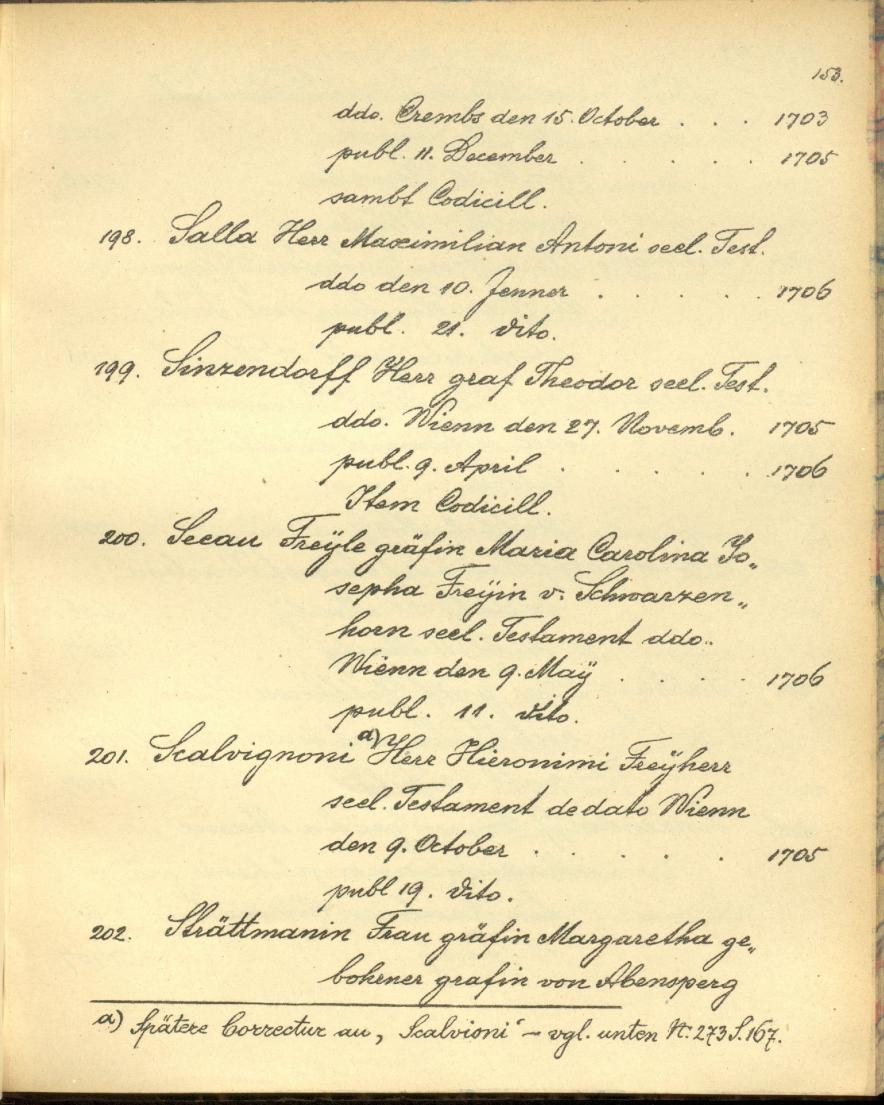 153.
ddo. Crembs den 15. October . . . 1703
publ. 11. December . . . . . 1705
sambt Codicill.
198. Salla Herr Maximilian Antoni seel. Test.
ddo den 10. Jenner . . . . . 1706
publ. 21. dito.
199. Sinzendorff Herr graf Theodor seel. Test.
ddo. Wienn den 27. Novemb. 1705
publ. 9. April . . . . . 1706
Item Codicill.
200. Seeau Freÿle gräfin Maria Carolina Jo„
sepha Freÿin v. Schwarzen„
horn seel. Testament ddo.
Wienn den 9. Maÿ . . . . 1706
publ. 11. dito.
201. Scalvignoni a) Herr Hieronimi Freÿherr
seel. Testament de dato Wienn
den 9. October . . . . . 1705
publ 19. dito.
202. Strättmanin Frau gräfin Margaretha ge„
bohrner grafin von Abensperg
a) Spätere Correctur au, Scalvioni‘ – vgl. unten Nr. 273 S. 167.